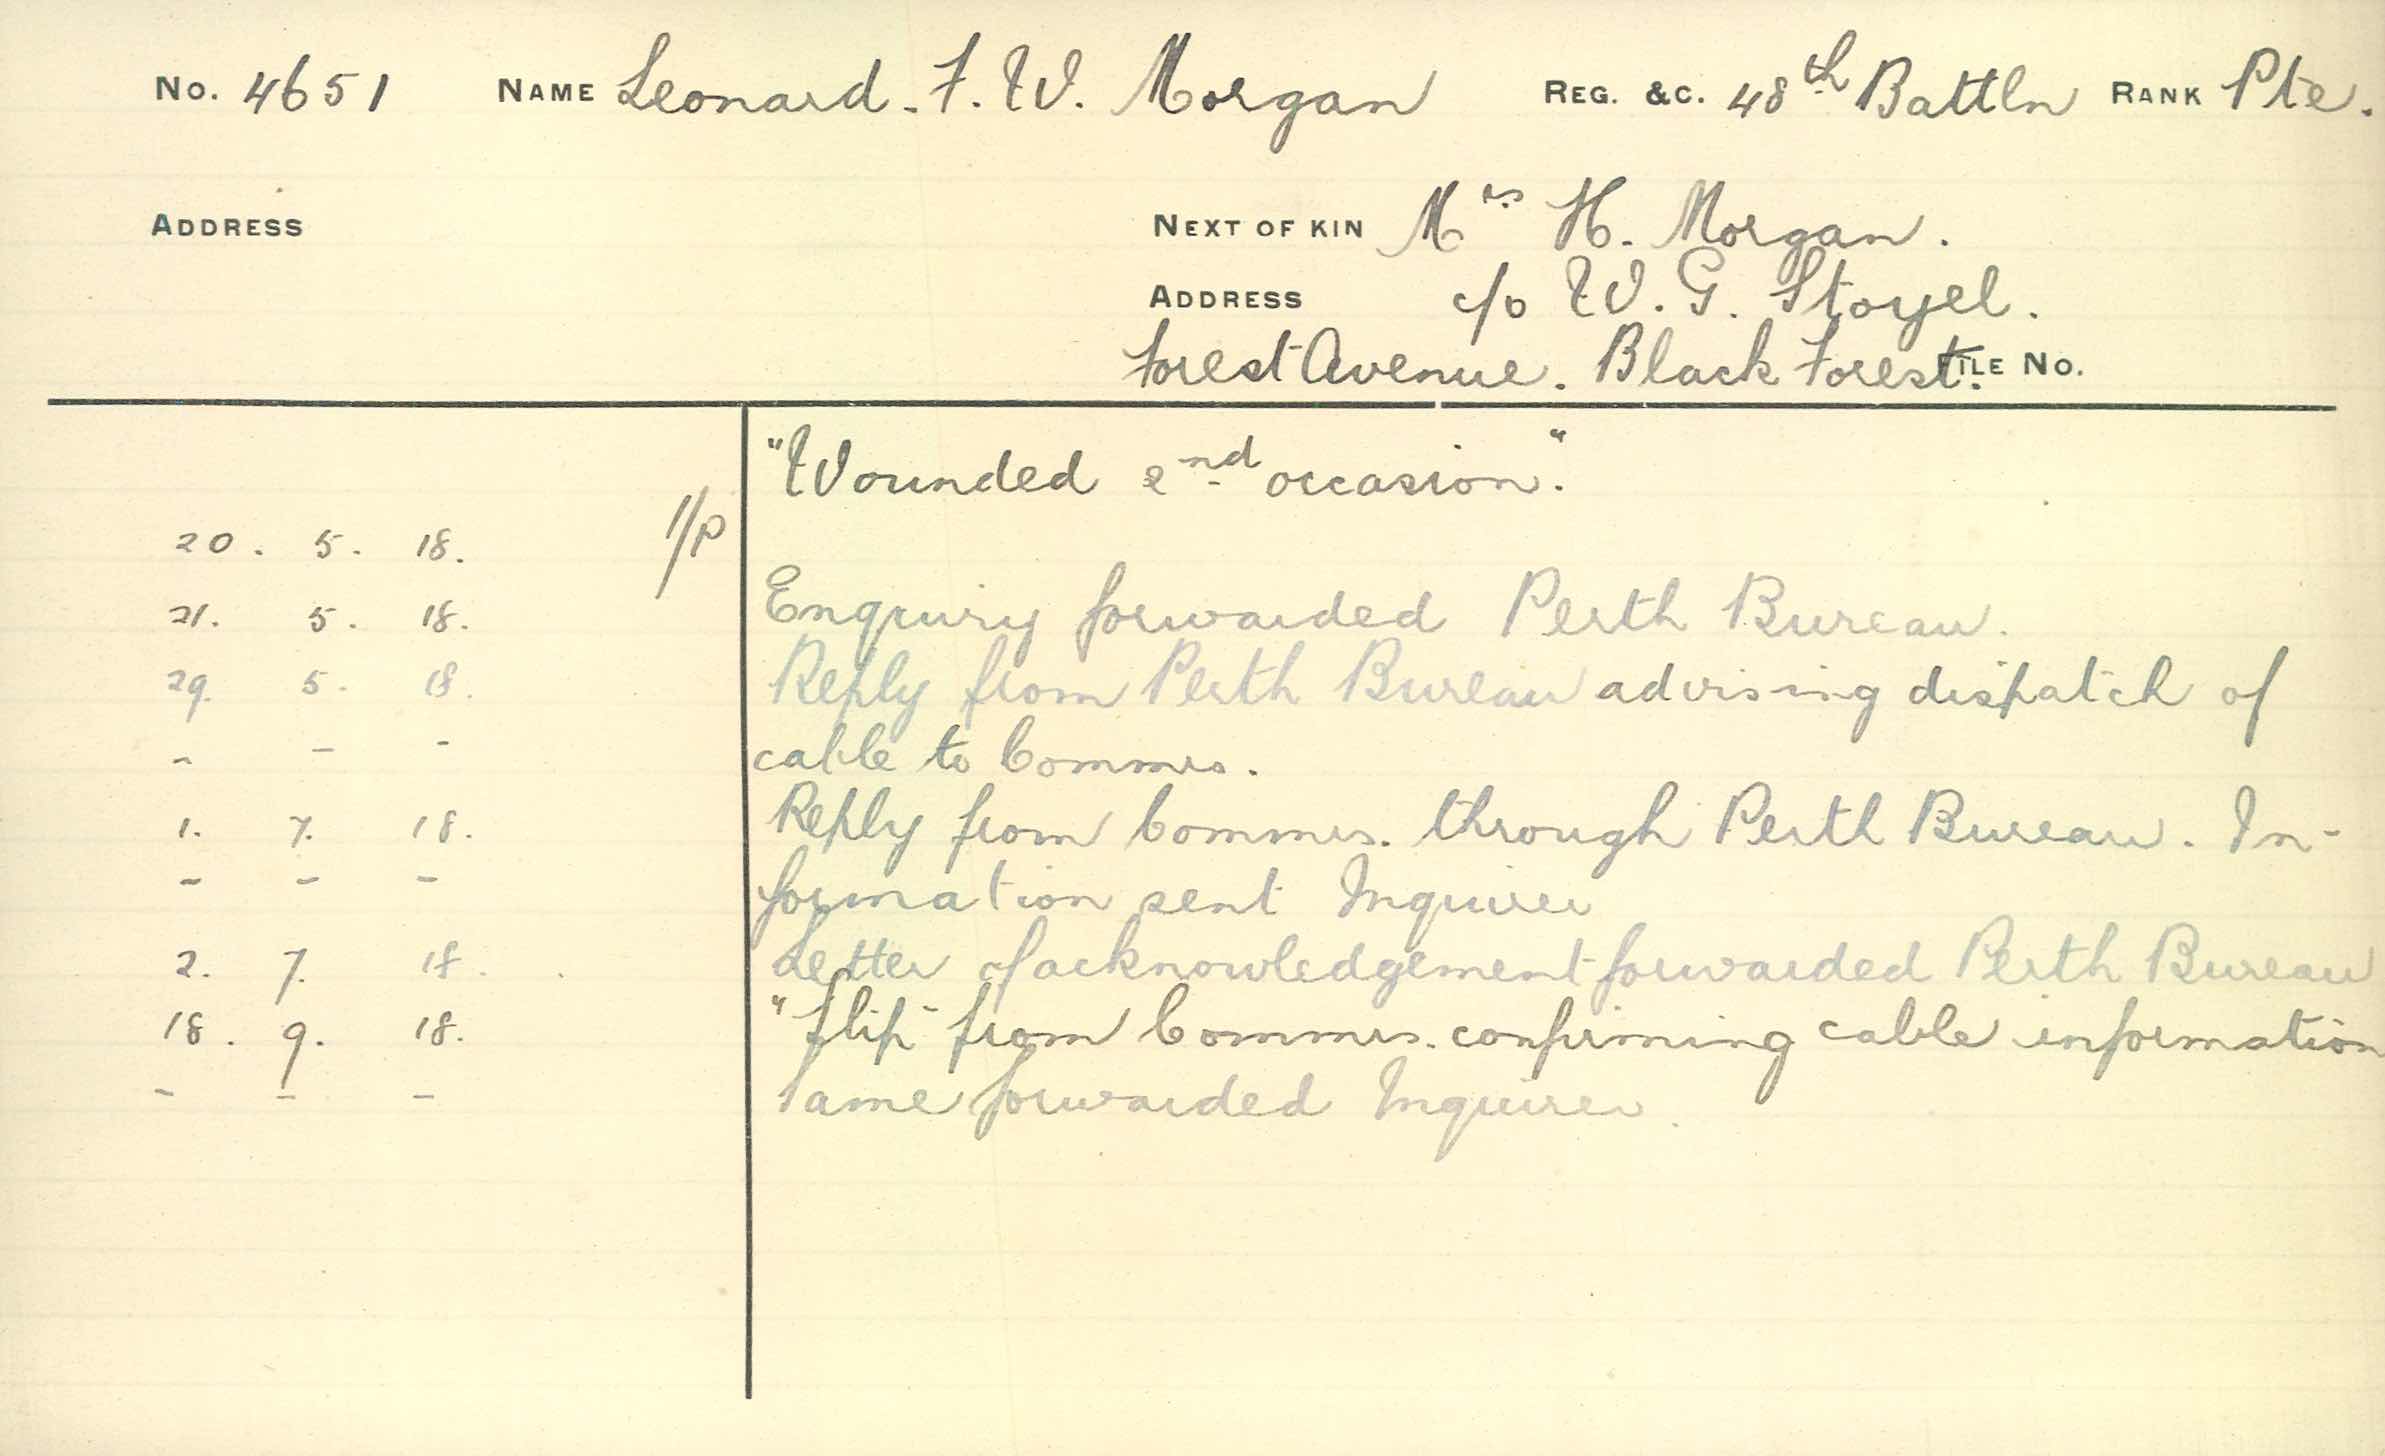 No. 4651 NAME Leonard. F. W. Morgan REG. &C. 48th Battln RANK Pte.
ADDRESS NEXT OF KIN Mrs H. Morgan.
ADDRESS c/o W. G. Stoyel.
Forest Avenue. Black Forest. FILE No.
"Wounded 2nd occasion."
20. 5. 18.
21. 5. 18. Enquiry forwarded Perth Bureau.
29. 5. 18. Reply from Perth Bureau advising dispatch of
- - - cable to Commrs.
1. 7. 18. Reply from Commrs. through Perth Bureau. In-
- - - formation sent Inquirer
2. 7. 18. Letter of acknowledgement forwarded Perth Bureau
18. 9. 18. "Slip" from Commrs. confirming cable information
- - - Same forwarded Inquirer.